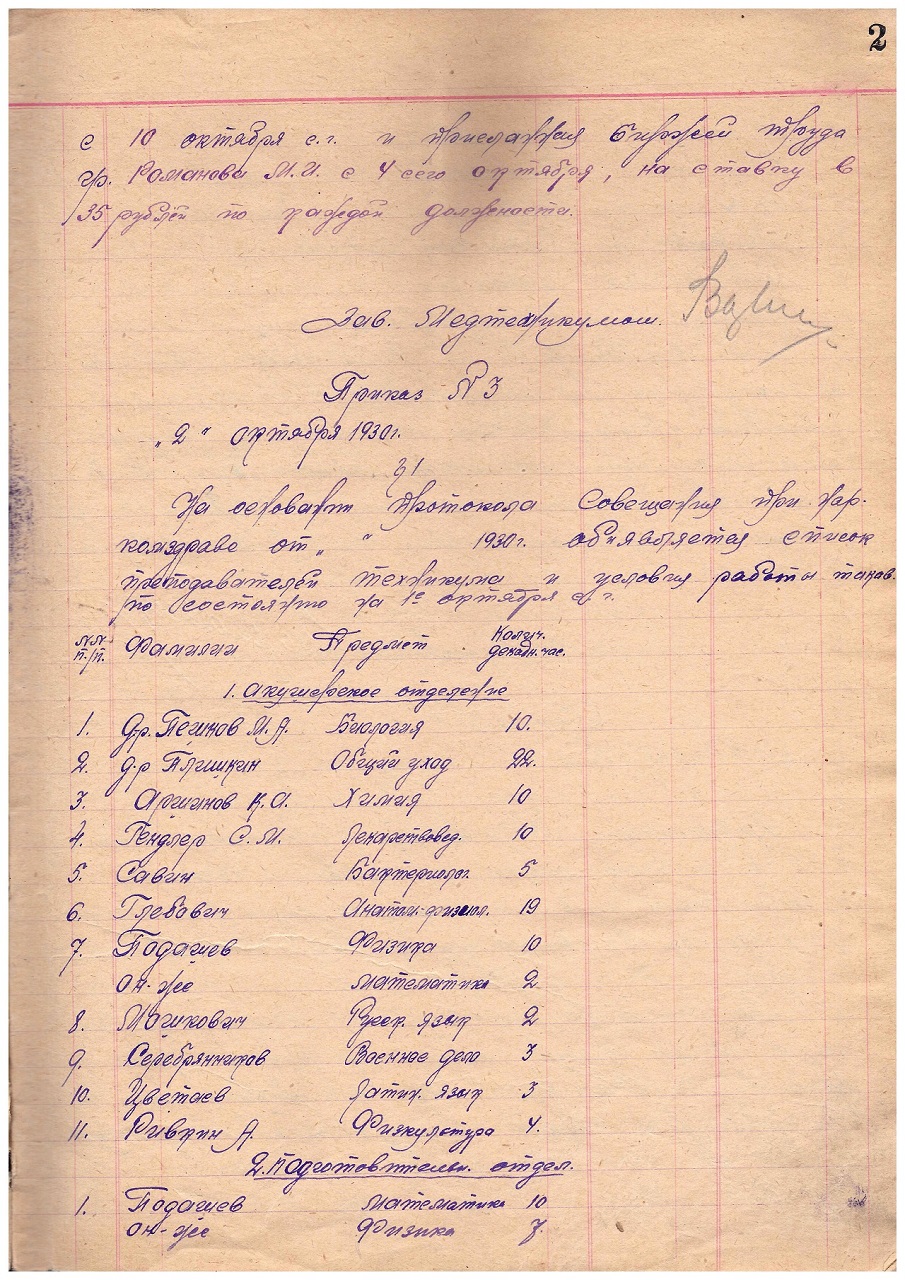 2
с 10 октября с.г. и присланная биржей труда
гр. Романова М.И. с 4 сего октября, на ставку в
35 рублей по каждой должности.
Зав. Медтехникумом.
Приказ N 3
„2" октября 1930г.
§1
На основан. протокола совещания при Нар-
комздраве от „ " 1930г. об'является список
преподавателей техникума и условия работы таков.
по состоянию на 1е октября с.г.
NN п./п. Фамилии Предмет Колич. декадн. час.
1. Акушерское отделение
1. Др. Пешков М.А. Биология 10.
2. д-р Плишкин Общий уход 22.
3. Аршинов К.А. Химия 10
4. Гендлер С.М. Лекарствовед. 10
5. Савин Бактериолог. 5
6. Глебович Анатом.-физиол. 19
7. Подашев Физика 10
он-же математика 2
8. Мошкович Русск. язык 2
9. Серебрянников Военное дело 3
10. Цветаев Латин. язык 3
11. Ривкин А. Физкультура 4.
2. Подготовительн. отдел.
1. Подашев математика 10
он-же Физика 7.